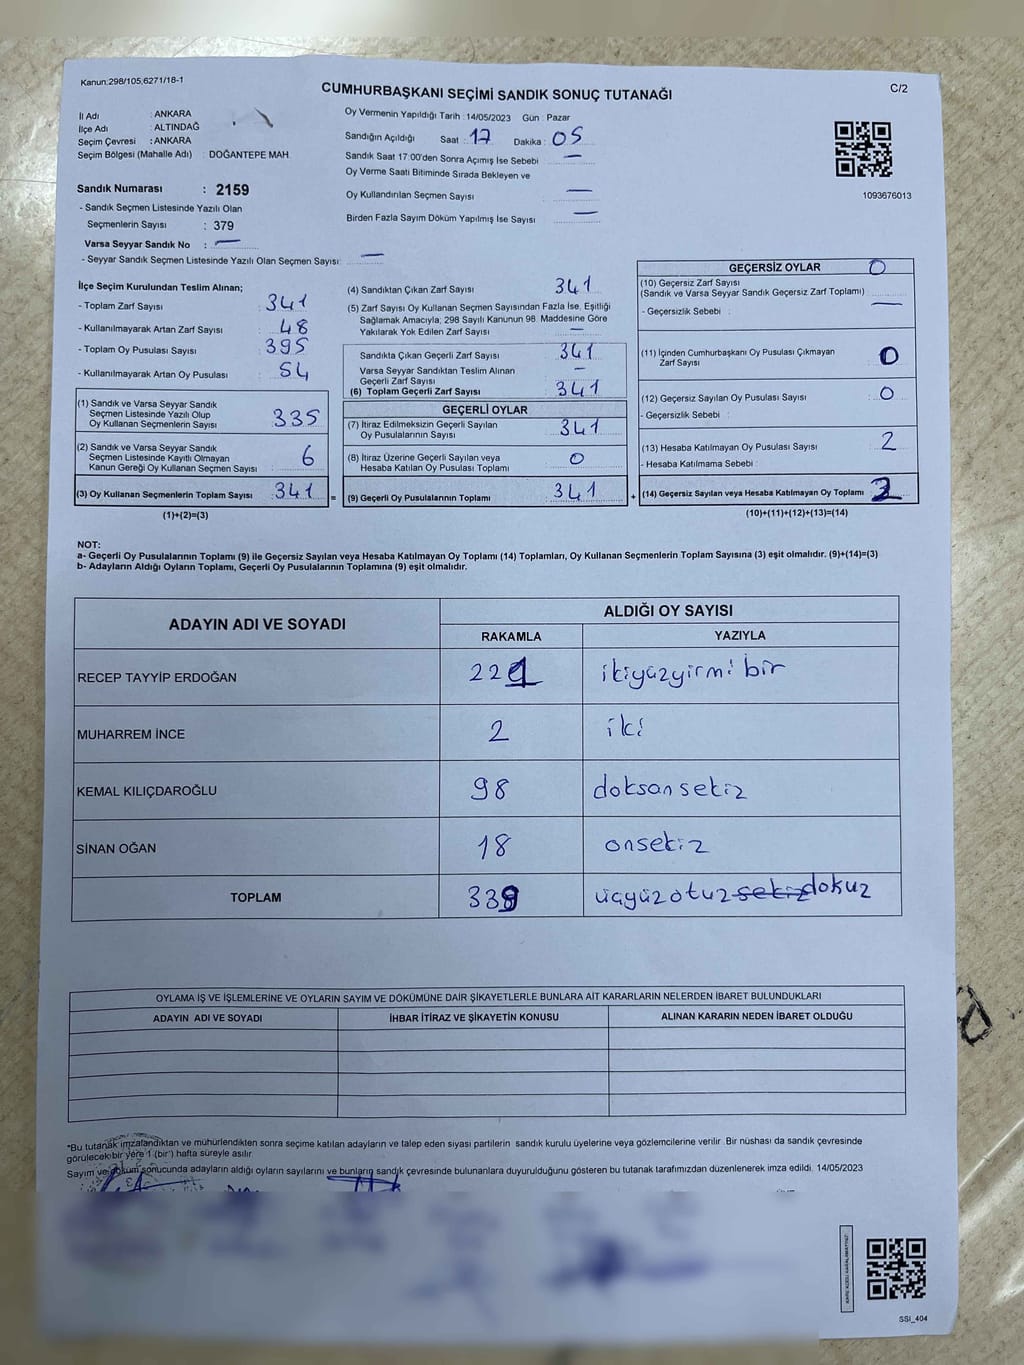 Kanun:298/105,6271/18-1
CUMHURBAŞKANI SEÇİMİ SANDIK SONUÇ TUTANAĞI
C/2
İl Adı : ANKARA
İlçe Adı : ALTINDAĞ
Seçim Çevresi : ANKARA
Seçim Bölgesi (Mahalle Adı) : DOĞANTEPE MAH.
Sandık Numarası : 2159
- Sandık Seçmen Listesinde Yazılı Olan
Seçmenlerin Sayısı : 379
Varsa Seyyar Sandık No : —
- Seyyar Sandık Seçmen Listesinde Yazılı Olan Seçmen Sayısı: —
Oy Vermenin Yapıldığı Tarih : 14/05/2023 Gün : Pazar
Sandığın Açıldığı Saat : 17 Dakika : 05
Sandık Saat 17:00'den Sonra Açımış İse Sebebi —
Oy Verme Saati Bitiminde Sırada Bekleyen ve
Oy Kullandırılan Seçmen Sayısı —
Birden Fazla Sayım Döküm Yapılmış İse Sayısı —
1093676013
İlçe Seçim Kurulundan Teslim Alınan;
- Toplam Zarf Sayısı : 341
- Kullanılmayarak Artan Zarf Sayısı : 48
- Toplam Oy Pusulası Sayısı : 395
- Kullanılmayarak Artan Oy Pusulası : 54
(1) Sandık ve Varsa Seyyar Sandık
Seçmen Listesinde Yazılı Olup
Oy Kullanan Seçmenlerin Sayısı 335
(2) Sandık ve Varsa Seyyar Sandık
Seçmen Listesinde Kayıtlı Olmayan
Kanun Gereği Oy Kullanan Seçmen Sayısı 6
(3) Oy Kullanan Seçmenlerin Toplam Sayısı 341 =
(1)+(2)=(3)
(4) Sandıktan Çıkan Zarf Sayısı 341
(5) Zarf Sayısı Oy Kullanan Seçmen Sayısından Fazla İse, Eşitliği
Sağlamak Amacıyla, 298 Sayılı Kanunun 98. Maddesine Göre
Yakılarak Yok Edilen Zarf Sayısı —
Sandıkta Çıkan Geçerli Zarf Sayısı 341
Varsa Seyyar Sandıktan Teslim Alınan
Geçerli Zarf Sayısı —
(6) Toplam Geçerli Zarf Sayısı 341
GEÇERLİ OYLAR
(7) İtiraz Edilmeksizin Geçerli Sayılan
Oy Pusulalarının Sayısı 341
(8) İtiraz Üzerine Geçerli Sayılan veya
Hesaba Katılan Oy Pusulası Toplamı 0
(9) Geçerli Oy Pusulalarının Toplamı 341 +
GEÇERSİZ OYLAR 0
(10) Geçersiz Zarf Sayısı
(Sandık ve Varsa Seyyar Sandık Geçersiz Zarf Toplamı)
- Geçersizlik Sebebi : —
(11) İçinden Cumhurbaşkanı Oy Pusulası Çıkmayan
Zarf Sayısı 0
(12) Geçersiz Sayılan Oy Pusulası Sayısı 0
- Geçersizlik Sebebi :
(13) Hesaba Katılmayan Oy Pusulası Sayısı 2
- Hesaba Katılmama Sebebi :
(14) Geçersiz Sayılan veya Hesaba Katılmayan Oy Toplamı 2
(10)+(11)+(12)+(13)=(14)
NOT:
a- Geçerli Oy Pusulalarının Toplamı (9) ile Geçersiz Sayılan veya Hesaba Katılmayan Oy Toplamı (14) Toplamları, Oy Kullanan Seçmenlerin Toplam Sayısına (3) eşit olmalıdır. (9)+(14)=(3)
b- Adayların Aldığı Oyların Toplamı, Geçerli Oy Pusulalarının Toplamına (9) eşit olmalıdır.
ADAYIN ADI VE SOYADI ALDIĞI OY SAYISI
RAKAMLA YAZIYLA
RECEP TAYYİP ERDOĞAN 221 ikiyüzyirmi bir
MUHARREM İNCE 2 iki
KEMAL KILIÇDAROĞLU 98 doksansekiz
SİNAN OĞAN 18 onsekiz
TOPLAM 339 üçyüzotuz sekiz dokuz
OYLAMA İŞ VE İŞLEMLERİNE VE OYLARIN SAYIM VE DÖKÜMÜNE DAİR ŞİKAYETLERLE BUNLARA AİT KARARLARIN NELERDEN İBARET BULUNDUKLARI
ADAYIN ADI VE SOYADI İHBAR İTİRAZ VE ŞİKAYETİN KONUSU ALINAN KARARIN NEDEN İBARET OLDUĞU
*Bu tutanak imzalandıktan ve mühürlendikten sonra seçime katılan adayların ve talep eden siyasi partilerin sandık kurulu üyelerine veya gözlemcilerine verilir. Bir nüshası da sandık çevresinde
görülecek bir yere 1 (bir) hafta süreyle asılır.
Sayım ve döküm sonucunda adayların aldığı oyların sayılarını ve bunların sandık çevresinde bulunanlara duyurulduğunu gösteren bu tutanak tarafımızdan düzenlenerek imza edildi. 14/05/2023
SSI_404